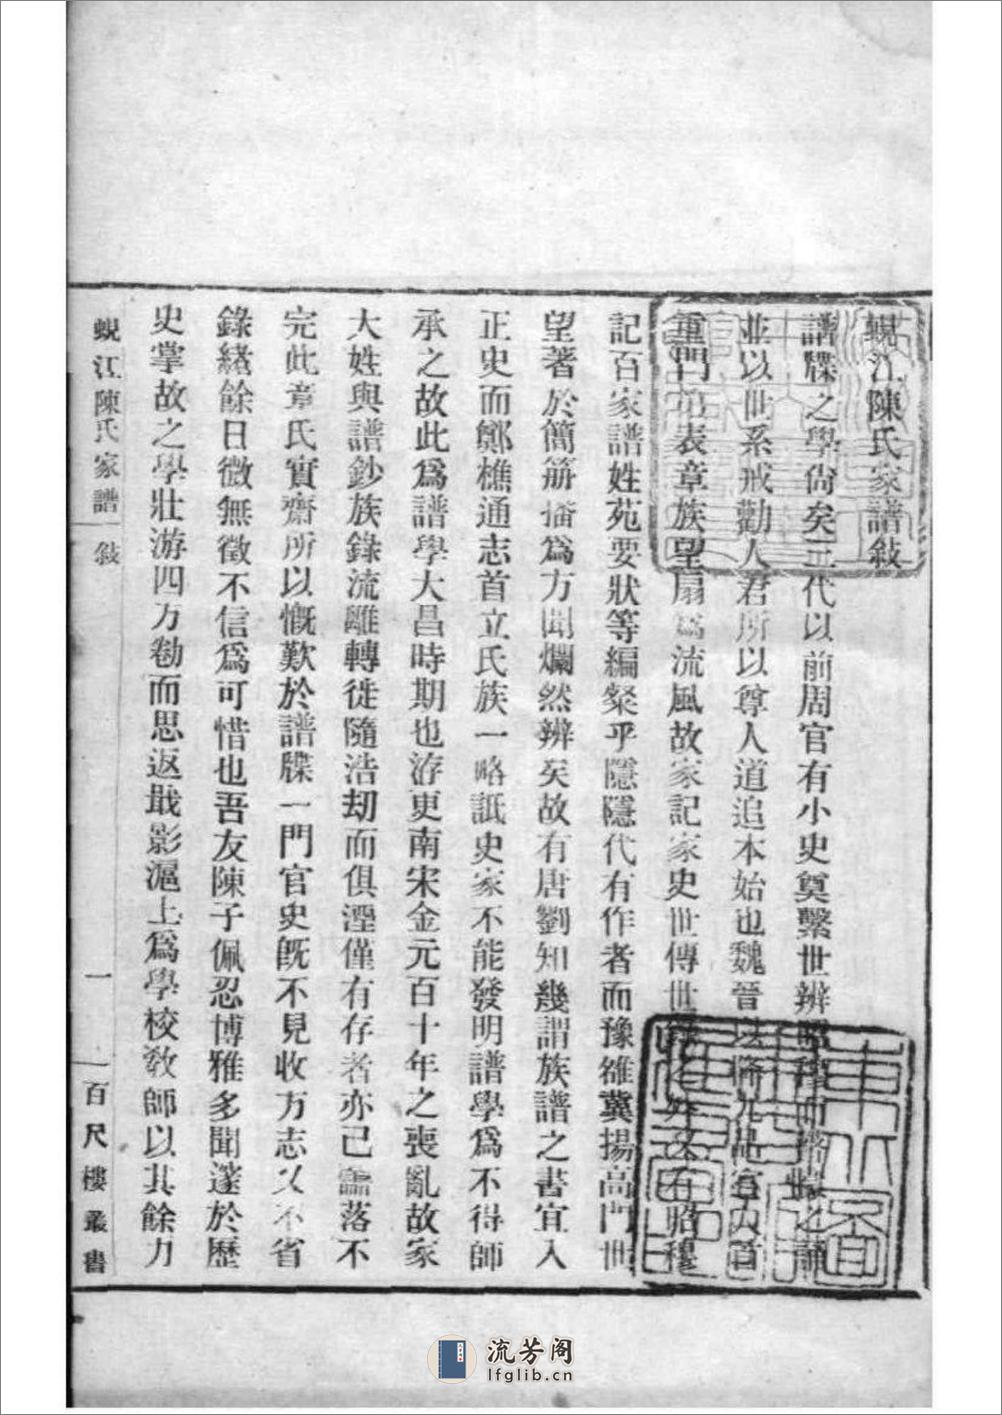 蜆江陳氏家譜敍
譜牒之學尙矣三代以前周官有小史奠繫世辨昭穆而譜牒之
並以世系戒勸人君所以尊人道追本始也魏晉以降九品官人首
重門第表章族望扇爲流風故家記家史世傳世錄之外又有昭穆
記百家譜姓苑要狀等編粲乎隱隱代有作者而豫雒冀揚高門世
望著於簡册播爲方聞爛然辨矣故有唐劉知幾謂族譜之書宜入
正史而鄭樵通志首立氏族一略詆史家不能發明譜學爲不得師
承之故此爲譜學大昌時期也洊更南宋金元百十年之喪亂故家
大姓與譜鈔族錄流離轉徙隨浩劫而俱湮僅有存者亦已霝落不
完此章氏實齋所以慨歎於譜牒一門官史旣不見收方志又不省
錄緒餘日微無徵不信爲可惜也吾友陳子佩忍博雅多聞邃於歷
史掌故之學壯游四方勌而思返戢影滬上爲學校敎師以其餘力
蜆江陳氏家譜 敍 一 百尺樓叢書
流芳阁
lfglib.cn